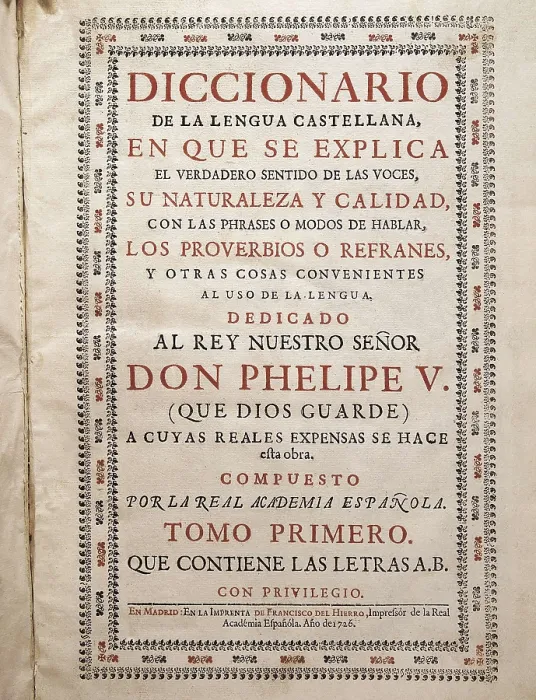 DICCIONARIO
DE LA LENGUA CASTELLANA,
EN QUE SE EXPLICA
EL VERDADERO SENTIDO DE LAS VOCES,
SU NATURALEZA Y CALIDAD,
CON LAS PHRASES O MODOS DE HABLAR,
LOS PROVERBIOS O REFRANES,
Y OTRAS COSAS CONVENIENTES
AL USO DE LA LENGUA.
DEDICADO
AL REY NUESTRO SEÑOR
DON PHELIPE V.
(QUE DIOS GUARDE)
A CUYAS REALES EXPENSAS SE HACE
esta obra.
COMPUESTO
POR LA REAL ACADEMIA ESPAÑOLA.
TOMO PRIMERO.
QUE CONTIENE LAS LETRAS A.B.
CON PRIVILEGIO.
EN MADRID: EN LA IMPRENTA DE FRANCISCO DEL HIERRO, Impressór de la Real
Académia Españóla. Año de 1726.